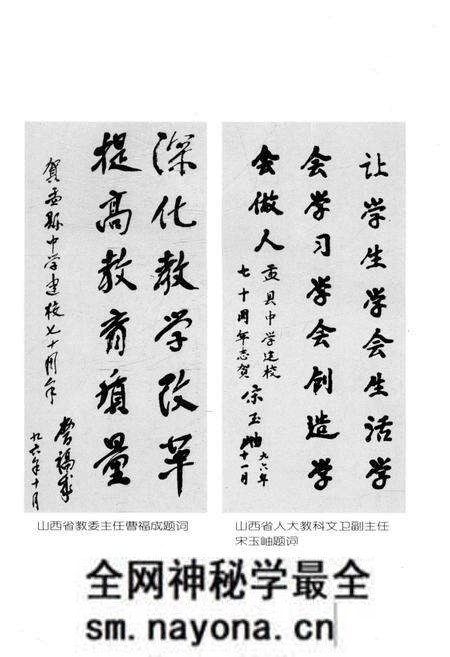 深化教学改革
提高教育质量
贺盂县中学建校七十周年
曹福成
九六年十月
让学生学会生活学
会学习学会创造学
会做人
盂县中学建校
七十周年志贺
宋玉岫
九六年
十一月
山西省教委主任曹福成题词
山西省人大教科文卫副主任
宋玉岫题词
全网神秘学最全
sm.nayona.cn